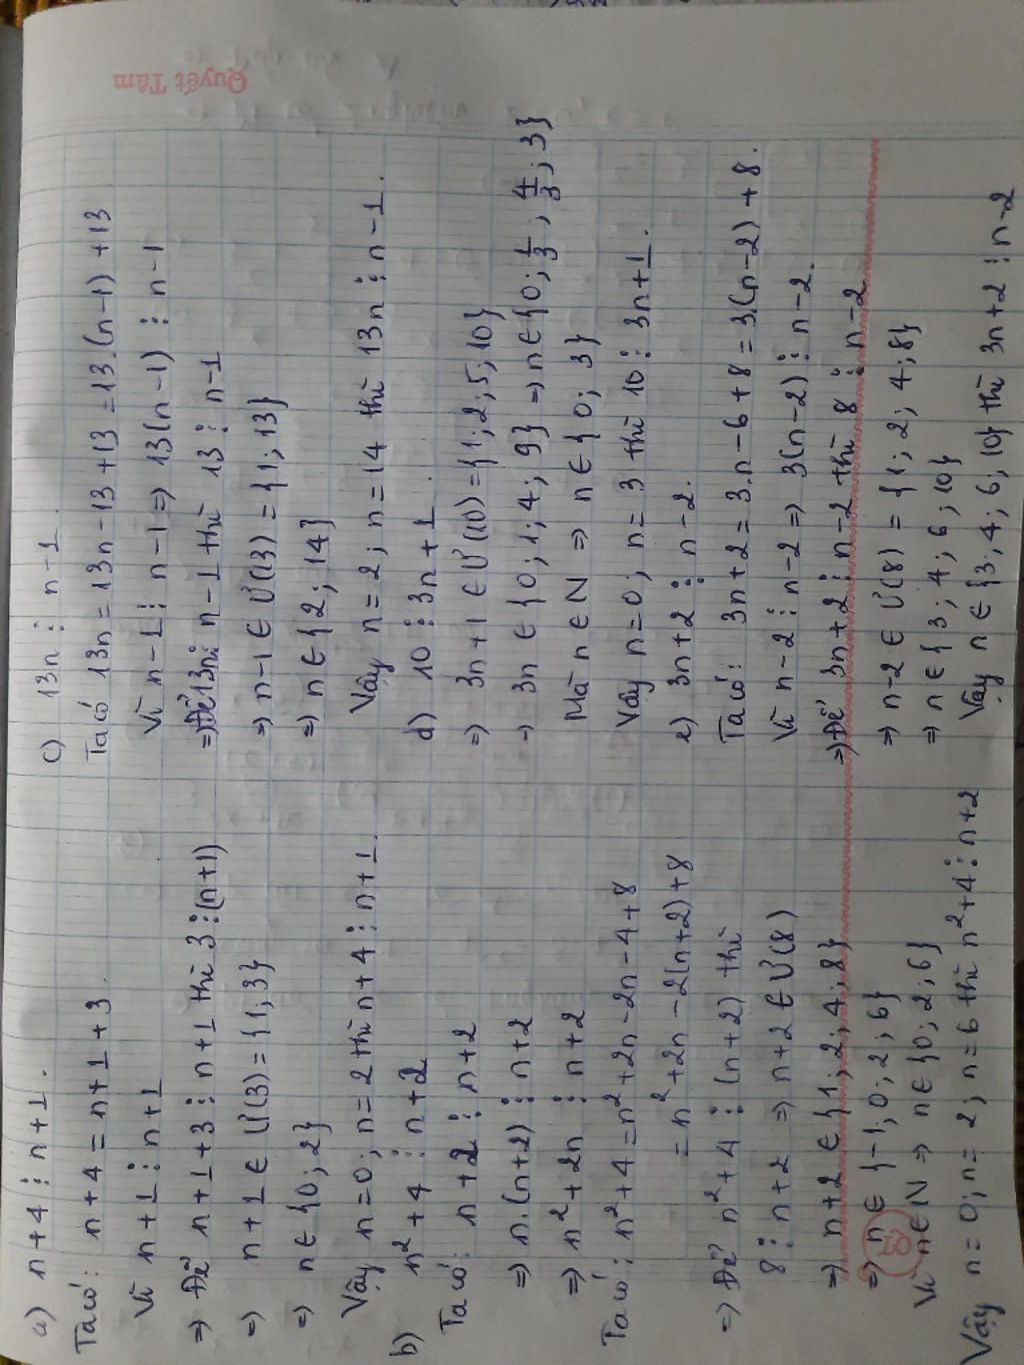 Quyết Tâm
a) n+4 ⋮ n+1.
Ta có: n+4 = n+1+3.
Vì n+1 ⋮ n+1
⇒ Để n+1+3 ⋮ n+1 thì 3 ⋮ (n+1)
⇒ n+1 ∈ Ư(3) = {1; 3}
⇒ n ∈ {0; 2}
Vậy n=0; n=2 thì n+4 ⋮ n+1.
b) n²+4 ⋮ n+2
Ta có: n+2 ⋮ n+2
⇒ n.(n+2) ⋮ n+2
⇒ n²+2n ⋮ n+2
Ta có: n²+4 = n²+2n-2n-4+8
= n²+2n-2(n+2)+8
⇒ Để n²+4 ⋮ (n+2) thì
8 ⋮ n+2 ⇒ n+2 ∈ Ư(8)
⇒ n+2 ∈ {1; 2; 4; 8}
⇒ n ∈ {-1; 0; 2; 6}
Vì n ∈ N ⇒ n ∈ {0; 2; 6}
Vậy n=0; n=2; n=6 thì n²+4 ⋮ n+2
c) 13n ⋮ n-1.
Ta có 13n = 13n-13+13 = 13.(n-1)+13
Vì n-1 ⋮ n-1 ⇒ 13(n-1) ⋮ n-1
⇒ Để 13n ⋮ n-1 thì 13 ⋮ n-1
⇒ n-1 ∈ Ư(13) = {1; 13}
⇒ n ∈ {2; 14}
Vậy n=2; n=14 thì 13n ⋮ n-1.
d) 10 ⋮ 3n+1.
⇒ 3n+1 ∈ Ư(10) = {1; 2; 5; 10}
→ 3n ∈ {0; 1; 4; 9} ⇒ n ∈ {0; 1/3; 4/3; 3}
Mà n ∈ N ⇒ n ∈ {0; 3}
Vậy n=0; n=3 thì 10 ⋮ 3n+1.
e) 3n+2 ⋮ n-2.
Ta có: 3n+2 = 3.n-6+8 = 3.(n-2)+8.
Vì n-2 ⋮ n-2 ⇒ 3(n-2) ⋮ n-2.
⇒ Để 3n+2 ⋮ n-2 thì 8 ⋮ n-2
⇒ n-2 ∈ Ư(8) = {1; 2; 4; 8}
⇒ n ∈ {3; 4; 6; 10}
Vậy n ∈ {3; 4; 6; 10} thì 3n+2 ⋮ n-2